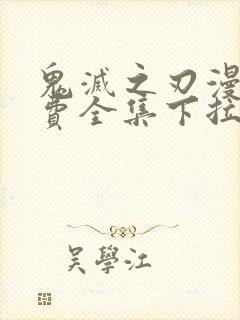 鬼滅之刃漫
費全集下拉
吳學江